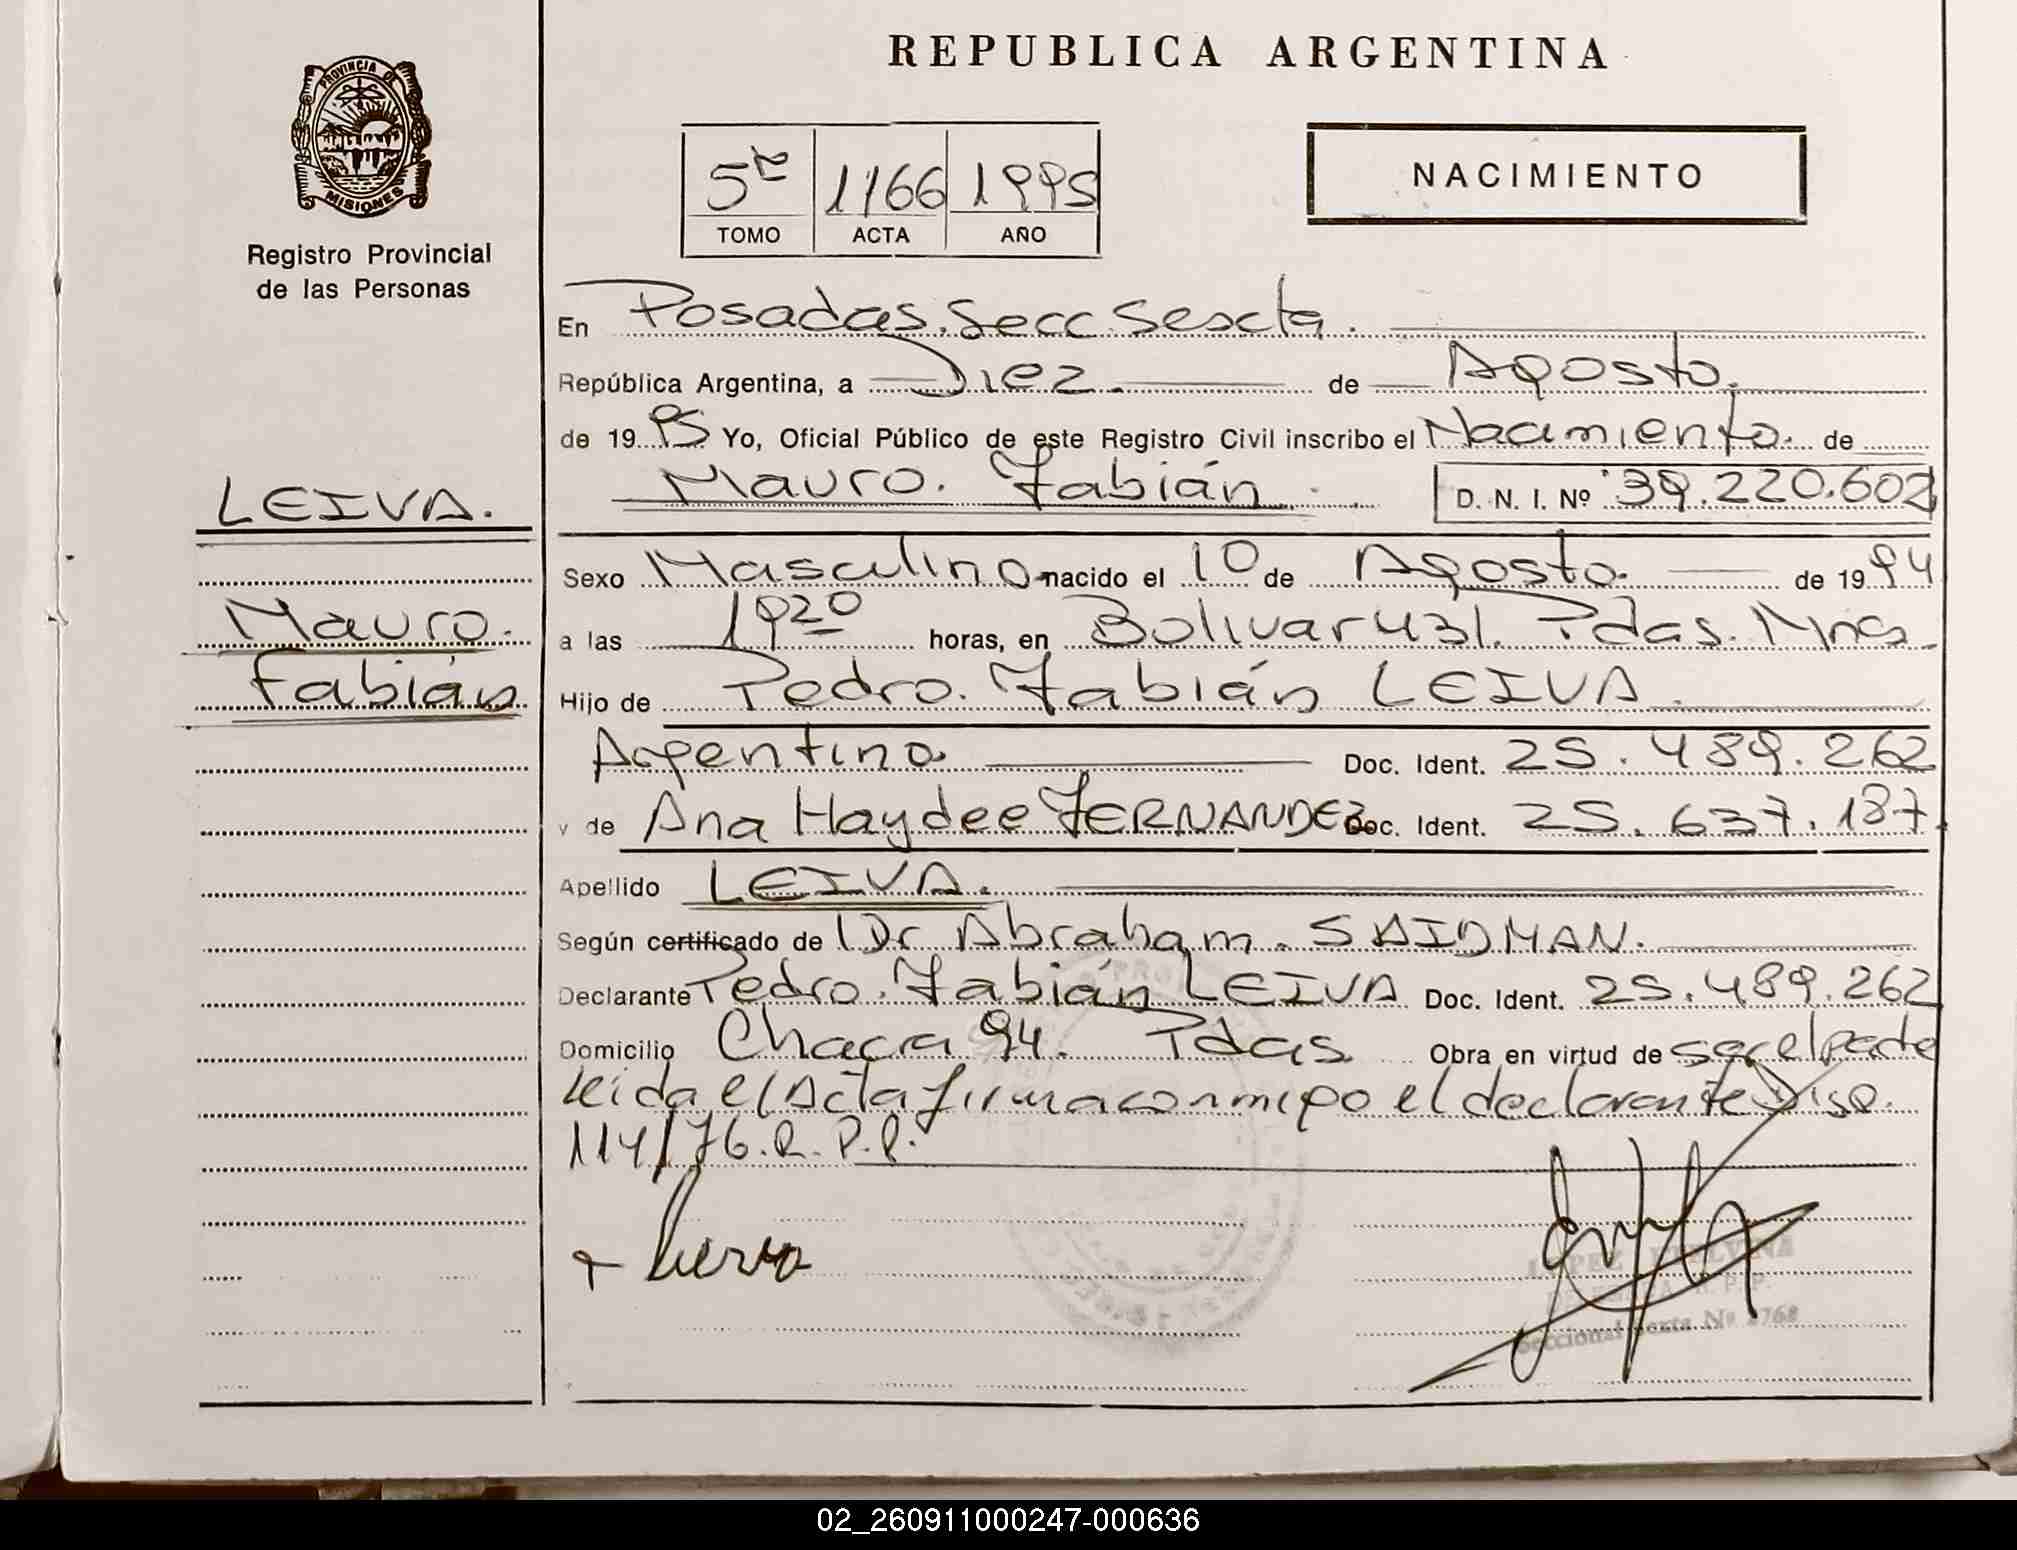 REPUBLICA ARGENTINA
PROVINCIA DE
MISIONES
Registro Provincial
de las Personas
5to 1166 1995
TOMO ACTA AÑO
NACIMIENTO
En Posadas. Secc. Sexcta.
República Argentina, a Diez. de Agosto.
de 1995 Yo, Oficial Público de este Registro Civil inscribo el Nacimiento de
Mauro. Fabián D. N. I. Nº 39.220.602
LEIVA.
Mauro.
Fabián
Sexo Masculino nacido el 10 de Agosto. de 1994
a las 1920 horas, en Bolivar 431. Pdas. Mnes
Hijo de Pedro. Fabián LEIVA
Argentino Doc. Ident. 25.489.262
y de Ana Haydee FERNANDEZ Doc. Ident. 25.637.187
Apellido LEIVA.
Según certificado de Dr Abraham. SAIDMAN.
Declarante Pedro. Fabián LEIVA Doc. Ident. 25.489.262
Domicilio Chacra 94. Pdas Obra en virtud de ser el padre
leida el Acta firma conmigo el declarante Disp.
114/76.R.P.P.
LOPEZ
Seccional Sexta Nº 2768
02_260911000247-000636